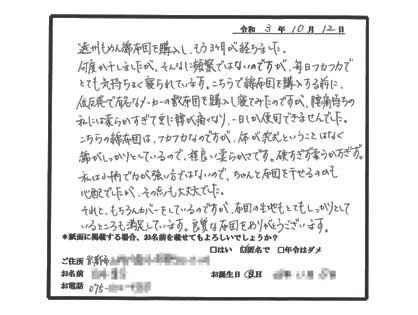 令和 3 年 10 月 12 日
遠州もめん綿布団を購入し、もう3ヶ月が経ちました。
何度か干しましたが、そんなに頻繁ではないのですが、毎日フカフカで
とても気持ちよく寝られています。こちらで綿布団を購入する前に、
低反発で有名なメーカーの敷布団を購入し寝てみたのですが、腰痛持ちの
私には柔らかすぎて更に腰が痛くなり、一日しか使用できませんでした。
こちらの綿布団は、フカフカなのですが、体が沈むということはなく
綿がしっかりとしているので、程良い柔らかさです。硬すぎず柔らかすぎず。
私は小柄で力が強い方ではないので、ちゃんと布団を干せるのかも
心配でしたが、その点も大丈夫でした。
それと、もちろんカバーをしているのですが、布団の生地もとてもしっかりして
いるところも満足しています。良質な布団をありがとうございます。
*紙面に掲載する場合、お名前を載せてもよろしいでしょうか？
□はい ☑匿名で □年令はダメ
ご住所 京都市
お名前 お誕生日 日
お電話 075-